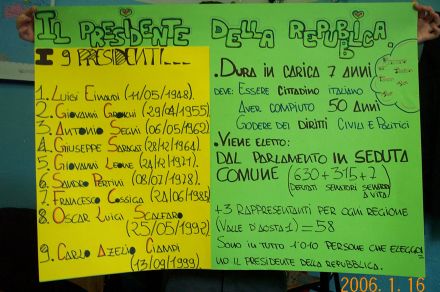 IL PRESIDENTE DELLA REPUBBLICA
I 9 PRESIDENTI...
1. LUIGI EINAUDI (11/05/1948).
2. GIOVANNI GRONCHI (29/04/1955).
3. ANTONIO SEGNI (06/05/1962)
4. GIUSEPPE SARAGAT (28/12/1964).
5. GIOVANNI LEONE (24/12/1971).
6. SANDRO PERTINI (08/07/1978).
7. FRANCESCO COSSIGA (24/06/1985)
8. OSCAR LUIGI SCALFARO
(25/05/1992)
9. CARLO AZELIO CIAMPI
(13/09/1999)
. DURA IN CARICA 7 ANNI
DEVE: ESSERE CITTADINO ITALIANO
AVER COMPIUTO 50 ANNI
GODERE DEI DIRITTI CIVILI E POLITICI
. VIENE ELETTO:
DAL PARLAMENTO IN SEDUTA
COMUNE (630+315+7)
DEPUTATI SENATORI SENATORI
A VITA
+3 RAPPRESENTANTI PER OGNI REGIONE
(VALLE D'AOSTA 1) = 58
SONO IN TUTTO 1010 PERSONE CHE ELEGGO
NO IL PRESIDENTE DELLA REPUBBLICA.
2006. 1. 16